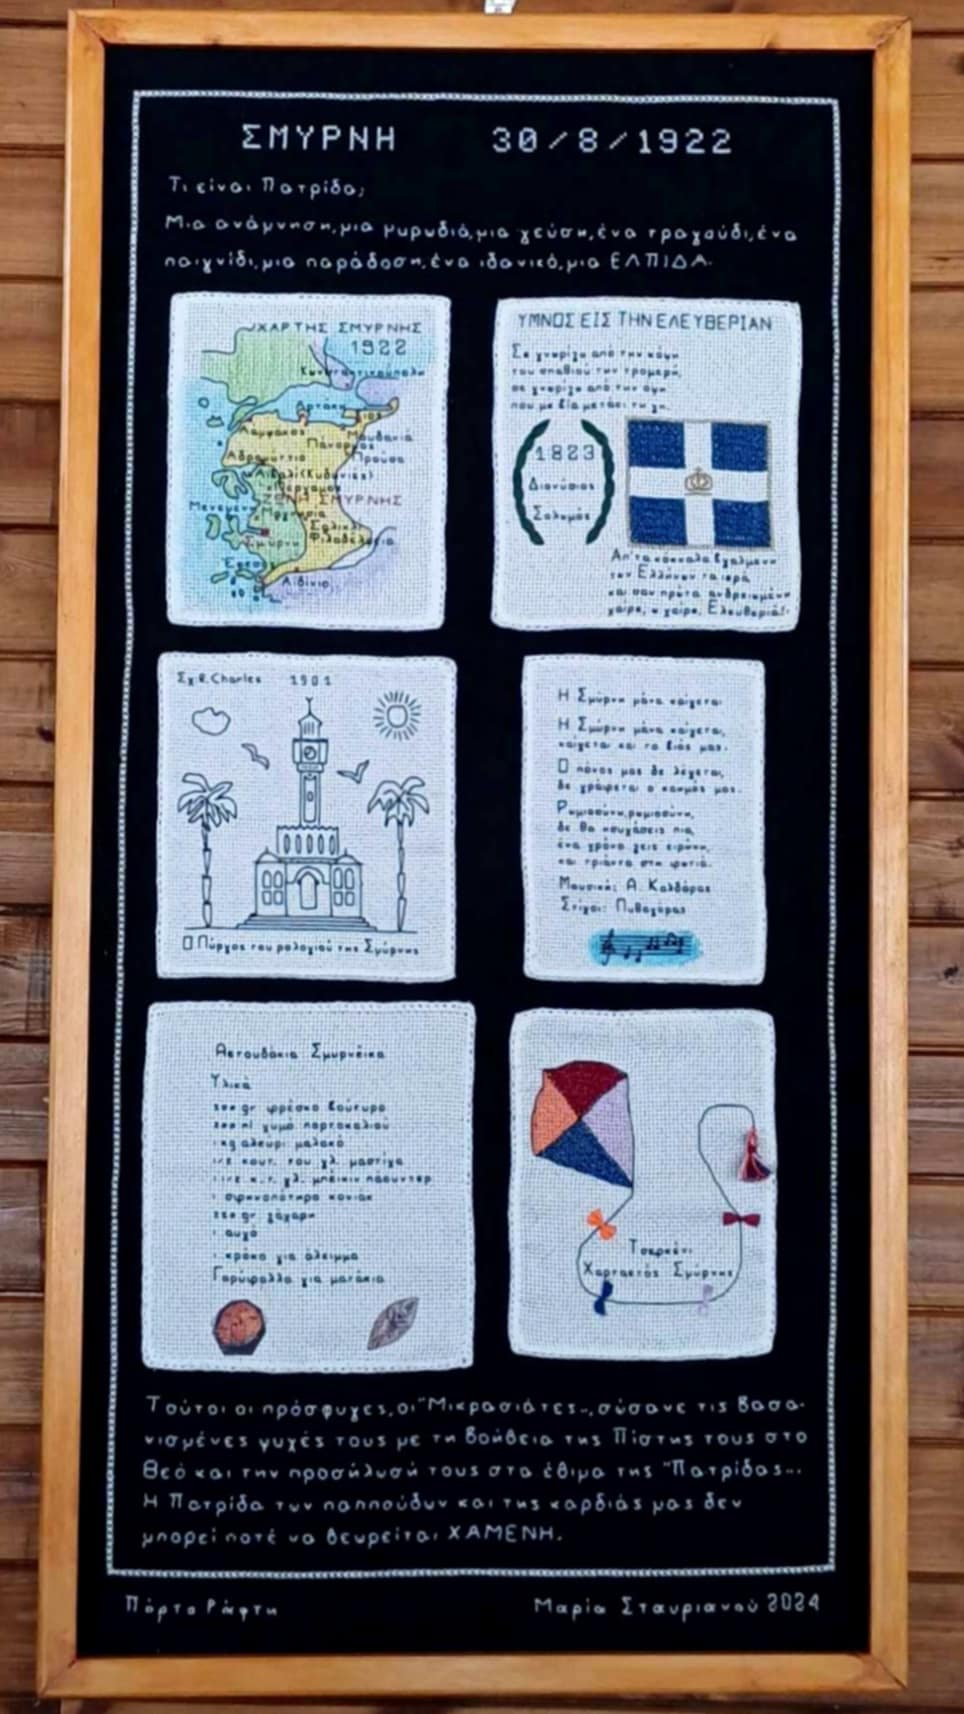 ΣΜΥΡΝΗ 30/8/1922
Τι είναι Πατρίδα;
Μια ανάμνηση, μια μυρωδιά, μια γεύση, ένα τραγούδι, ένα
παιχνίδι, μια παράδοση, ένα ιδανικό, μια ΕΛΠΙΔΑ.
ΧΑΡΤΗΣ ΣΜΥΡΝΗΣ
1922
Κωνσταντινούπολη
Αρτάκη
Κίος
Λάμψακος
Μουδανιά
Πάνορμος
Αδραμύττιο
Προύσα
Αϊβαλί (Κυδωνίες)
Πέργαμος
ΖΩΝΗ ΣΜΥΡΝΗΣ
Μενεμένη
Μαγνησία
Σαλιχλί
Σμύρνη
Φιλαδέλφεια
Έφεσος
Αϊδίνιο
ΥΜΝΟΣ ΕΙΣ ΤΗΝ ΕΛΕΥΘΕΡΙΑΝ
Σε γνωρίζω από την κόψη
του σπαθιού την τρομερή,
σε γνωρίζω από την όψη
που με βία μετράει τη γη.
1823
Διονύσιος
Σολωμός
Απ'τα κόκκαλα βγαλμένη
των Ελλήνων τα ιερά
και σαν πρώτα ανδρειωμένη
χαίρε, ω χαίρε, Ελευθεριά!
Σχ. R. Charles 1901
Ο Πύργος του ρολογιού της Σμύρνης
Η Σμύρνη μάνα καίγεται
Η Σμύρνη μάνα καίγεται,
καίγεται και το βιός μας.
Ο πόνος μας δε λέγεται,
δε γράφεται ο καημός μας.
Ρωμιοσύνη, ρωμιοσύνη,
δε θα ησυχάσεις πια,
ένα χρόνο ζεις ειρήνη,
και τριάντα στη φωτιά.
Μουσική: Α. Καλδάρας
Στίχοι: Πυθαγόρας
Αετουδάκια Σμυρνέικα
Υλικά
gr φρέσκο βούτυρο
ml χυμό πορτοκαλιού
1 kg αλεύρι μαλακό
1/2 κουτ. του γλ. μαστίχα
κ.τ. γλ. μπέικιν πάουντερ
1 σφηνοπότηρο κονιάκ
gr ζάχαρη
1 αυγό
1 κρόκο για άλειμμα
Γαρύφαλλα για ματάκια
Τσερκένι
Χαρταετός Σμύρνης
Τούτοι οι πρόσφυγες, οι "Μικρασιάτες", σώσανε τις βασα-
νισμένες ψυχές τους με τη βοήθεια της Πίστης τους στο
Θεό και την προσήλωσή τους στα έθιμα της "Πατρίδας"..
Η Πατρίδα των παππούδων και της καρδιάς μας δεν
μπορεί ποτέ να θεωρείται ΧΑΜΕΝΗ.
Πόρτο Ράφτη Μαρία Σταυριανού 2024